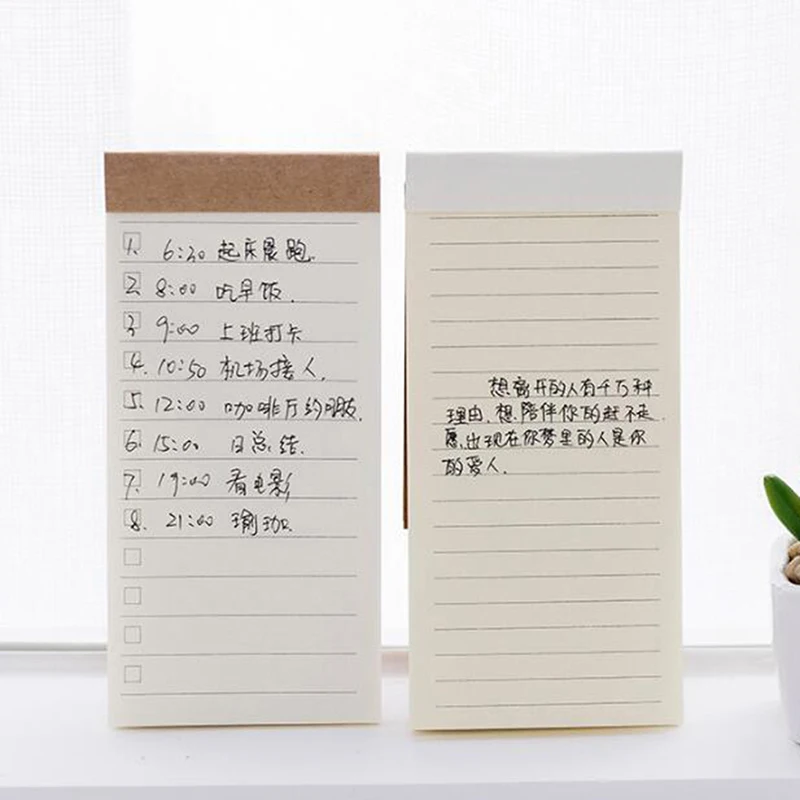 1. 6:30 起床晨跑.
2. 8:00 吃早饭.
3. 9:00 上班打卡
4. 10:50 机场接人.
5. 12:00 咖啡厅约朋友.
6. 15:00 日总结.
7. 19:00 看电影
8. 21:00 瑜珈.
想离开的人有千万种
理由.想陪伴你的赶不走.
愿出现在你梦里的人是你
的爱人.